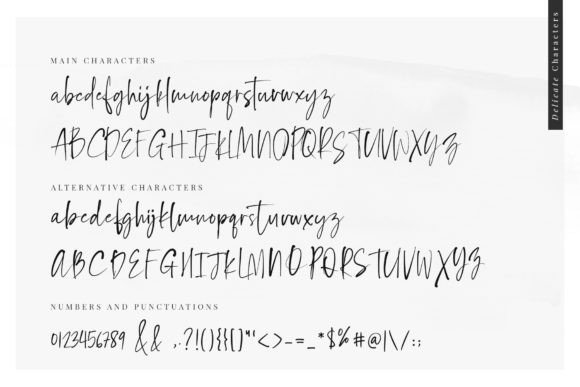 Delicate Characters
MAIN CHARACTERS
abcdefghijklmnopqrstuvwxyz
ABCDEFGHIJKLMNOPQRSTUVWXYZ
ALTERNATIVE CHARACTERS
abcdefghijklmnopqrstuvwxyz
ABCDEFGHIJKLMNOPQRSTUVWXYZ
NUMBERS AND PUNCTUATIONS
0123456789 && ,.?!(){}[]"'<>-=_*$%#@|\/:;